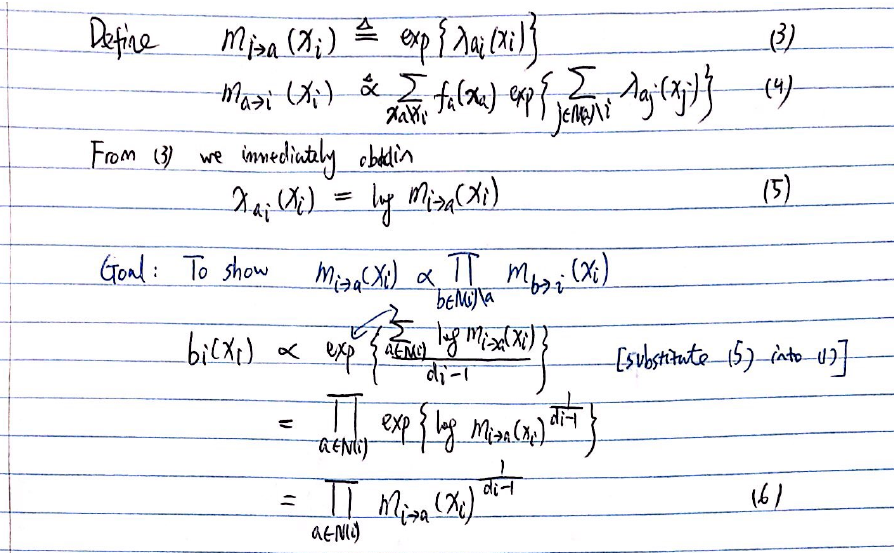 Define m_{i→a}(x_i) ≜ exp{λ_{ai}(x_i)} (3)
m_{a→i}(x_i) ∝^Δ ∑_{x_a\x_i} f_a(x_a) exp{∑_{j∈N(a)\i} λ_{aj}(x_j)} (4)
From (3) we immediately obtain
λ_{ai}(x_i) = log m_{i→a}(x_i) (5)
Goal: To show m_{i→a}(x_i) ∝ ∏_{b∈N(i)\a} m_{b→i}(x_i)
b_i(x_i) ∝ exp{∑_{a∈N(i)} log m_{i→a}(x_i) / d_i-1} [substitute (5) into (1)]
= ∏_{a∈N(i)} exp{log m_{i→a}(x_i)^{1/(d_i-1)}}
= ∏_{a∈N(i)} m_{i→a}(x_i)^{1/(d_i-1)} (6)